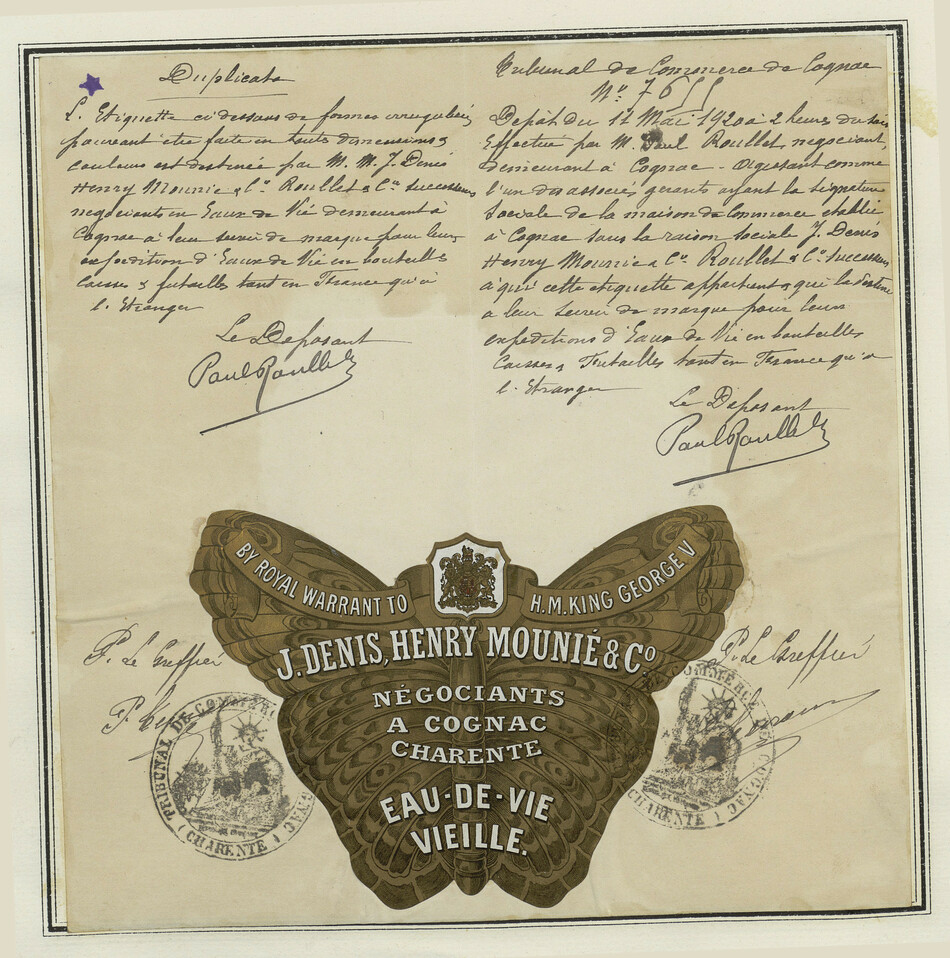 Duplicata
L'Etiquette ci dessous de formes irregulières
pouvant être faite en touts dimensions &
couleurs est destinée par M. M. J. Denis
Henry Mounié & Cº Roullet & Cº Successeurs
négociants en Eaux de Vie demeurant à
Cognac à leur servir de marque pour leurs
expedition d'Eaux de Vie en bouteilles
Caisses & futailles tant en France qu'à
l'Etranger
Le Deposant
Paul Roullet
Tribunal de Commerce de Cognac
Nº 7655
Dépôt du 12 Mai 1920 à 2 heures du soir
Effectué par M. Paul Roullet, négociant,
demeurant à Cognac - agissant comme
l'un des associés gerants ayant la signature
sociale de la maison de Commerce établie
à Cognac sous la raison sociale J. Denis
Henry Mounié & Cº Roullet & Cº Successeurs
à qui cette etiquette appartient & qui la destine
a leur servir de marque pour leurs
expéditions d'Eaux de Vie en bouteilles
Caisses & Futailles tant en France qu'a
l'Etranger
Le Deposant
Paul Roullet
BY ROYAL WARRANT TO H.M. KING GEORGE V
J. DENIS, HENRY MOUNIÉ & Cº
NÉGOCIANTS
A COGNAC
CHARENTE
EAU-DE-VIE
VIEILLE.
P. Le Greffier
TRIBUNAL DE COMMERCE
(CHARENTE)
P. Le Greffier
COMMERCE
COGNAC
(CHARENTE)